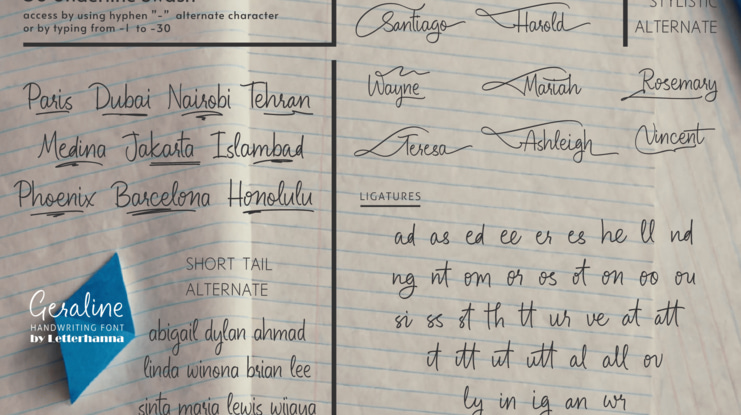 access by using hyphen "-" alternate character
or by typing from -1 to -30
Paris Dubai Nairobi Tehran
Medina Jakarta Islambad
Phoenix Barcelona Honolulu
SHORT TAIL
ALTERNATE
abigail dylan ahmad
linda winona brian lee
sinta maria lewis wijaya
Geraline
HANDWRITING FONT
by Letterhanna
STYLISTIC
ALTERNATE
Santiago Harold
Wayne Mariah Rosemary
Teresa Ashleigh Vincent
LIGATURES
ad as ed ee er es he ll nd
ng nt om or os ot on oo ou
si ss st th tt ur ve at att
it itt ut utt al all ov
ly in ig an wr